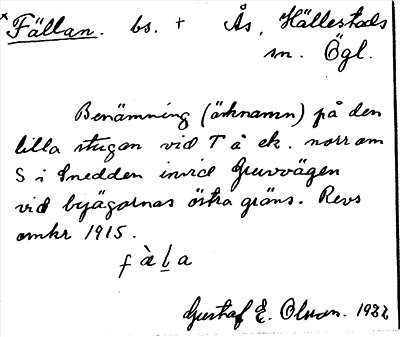 x Fällan. bs. + Ås, Hällestads
sn. Ögl.
Benämning (öknamn) på den
lilla stugan vid T å ek. norr om
S i Snedden invid Gruvvägen
vid byägornas östra gräns. Revs
omkr 1915.
f à l a
Gustaf E. Olsson. 1932